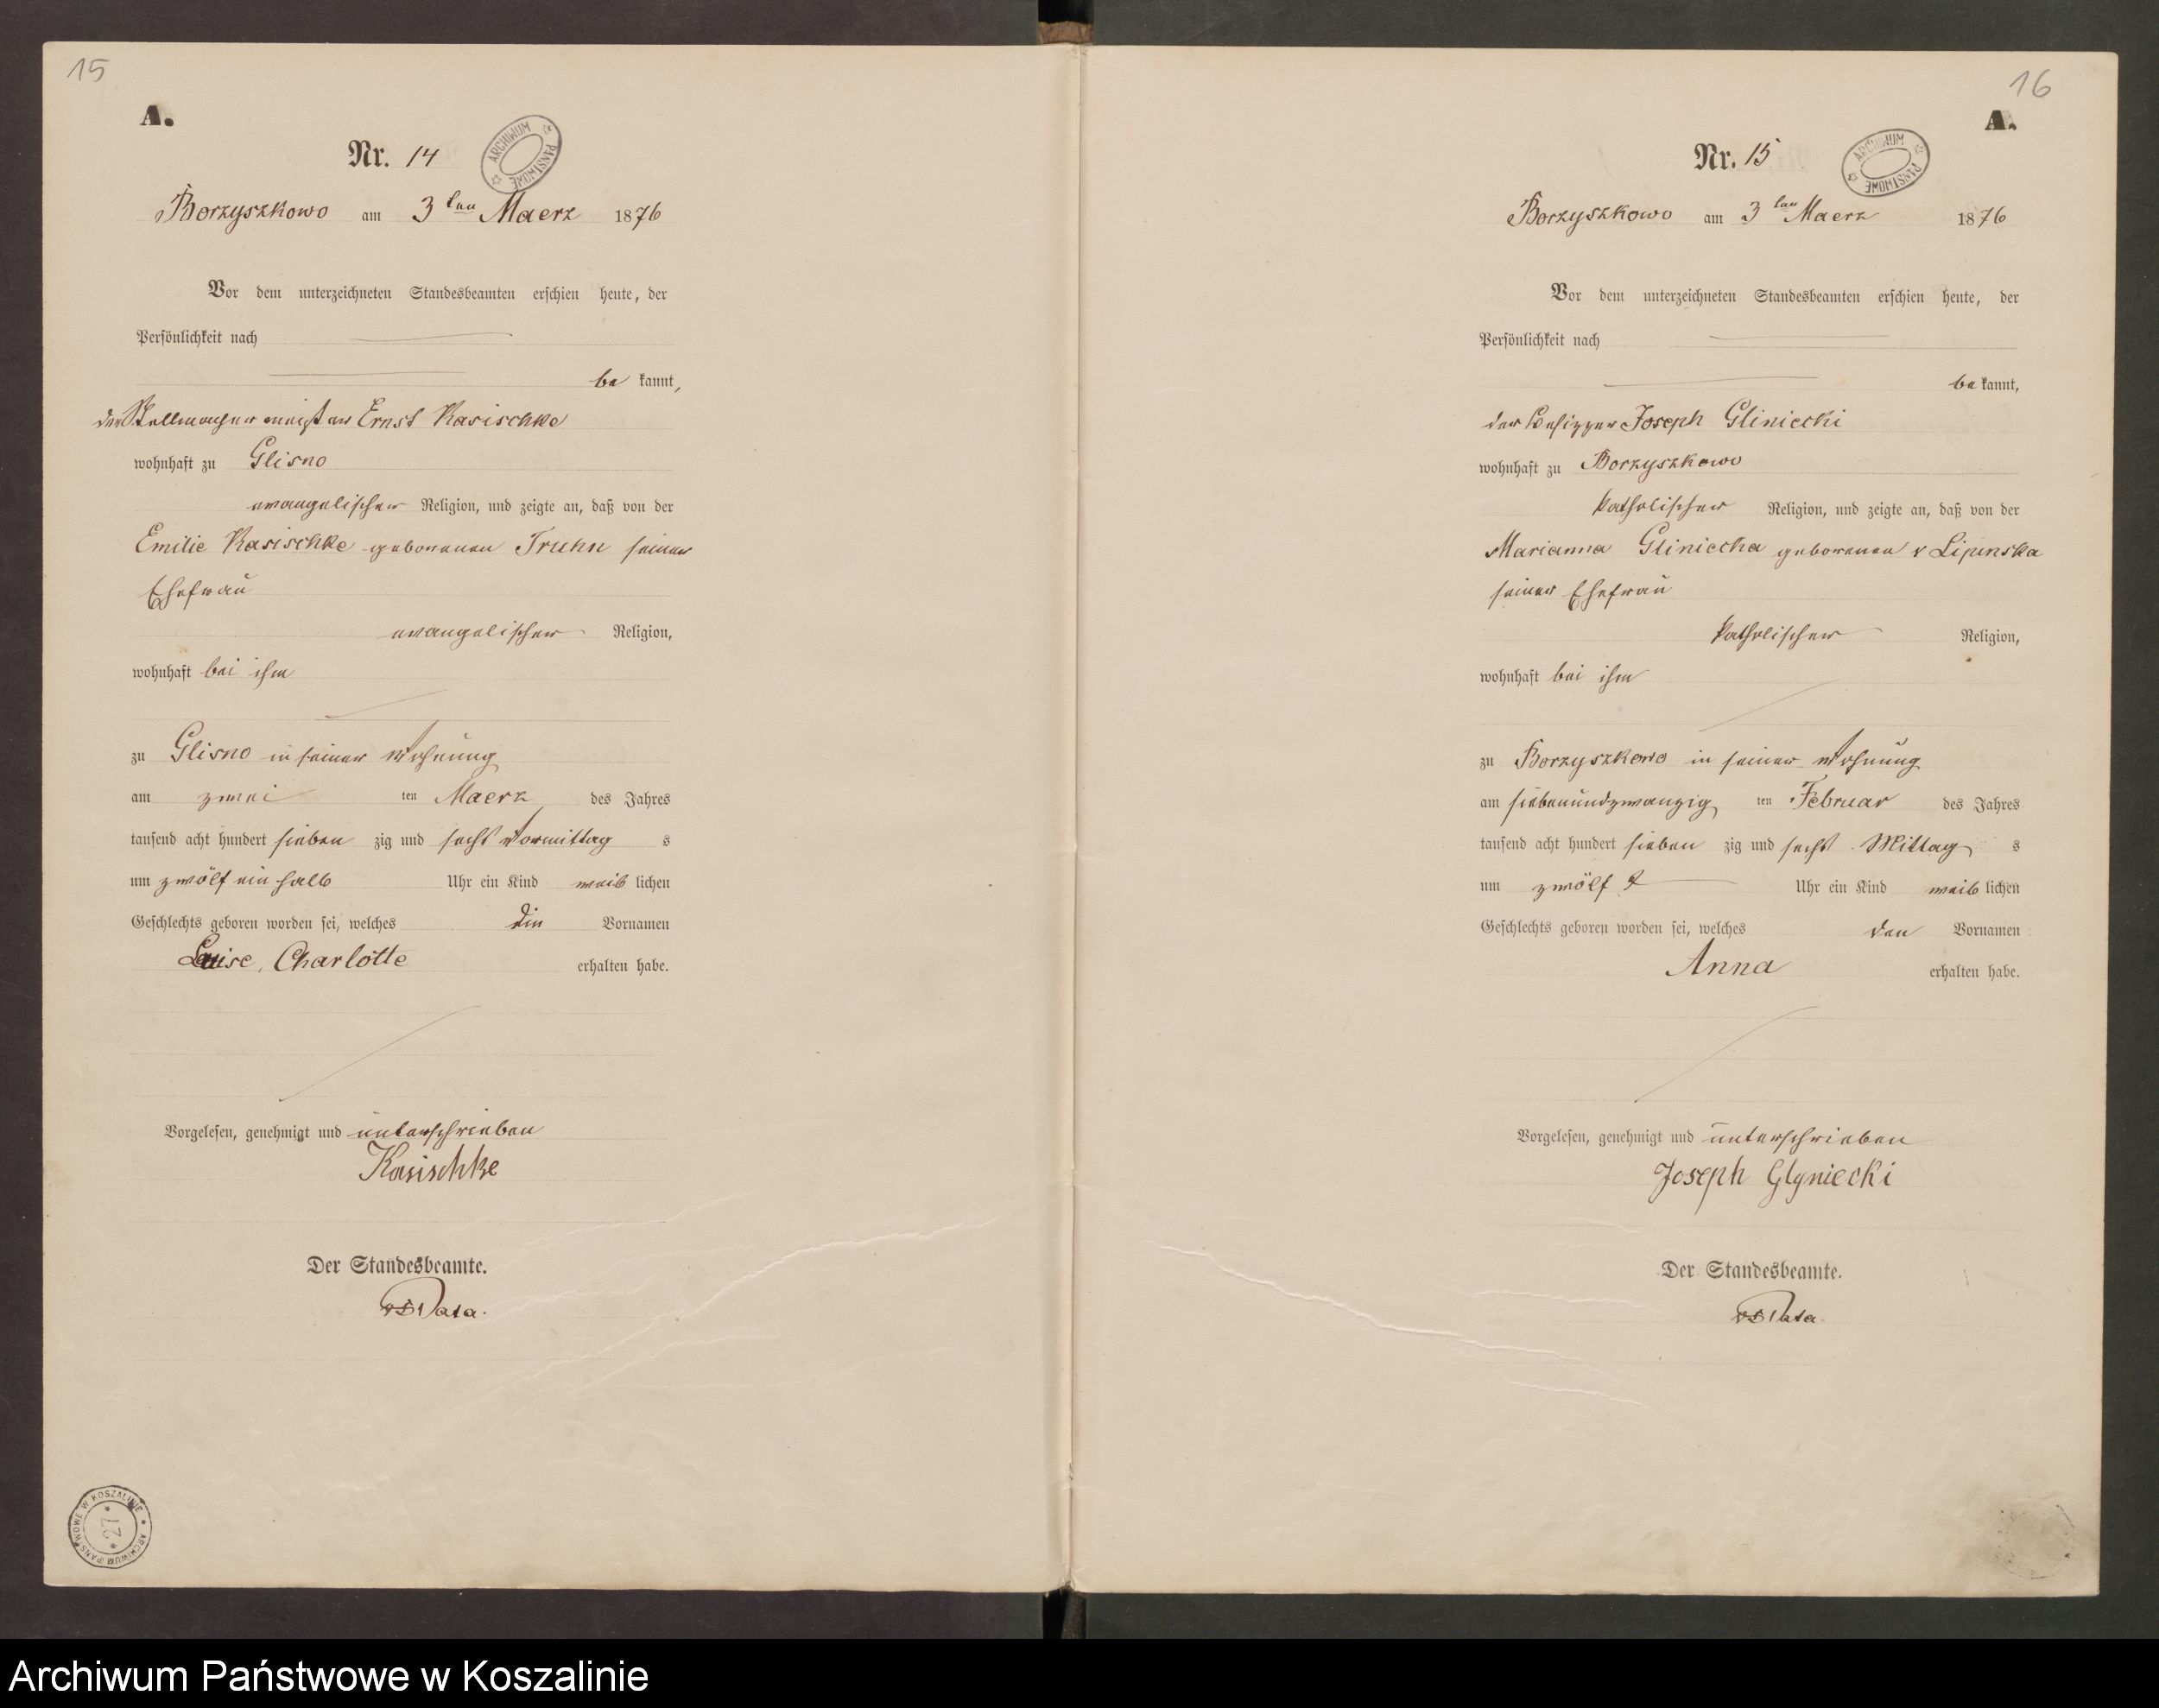 15
A.
Nr. 14
ARCHIWUM PAŃSTWOWE
Borzyszkowo am 3 ten Maerz 1876
Vor dem unterzeichneten Standesbeamten erschien heute, der
Persönlichkeit nach
be kannt,
der Stellmachermeister Ernst Kasischke
wohnhaft zu Glisno
evangelischer Religion, und zeigte an, daß von der
Emilie Kasischke geborenen Truhn seiner
Ehefrau
evangelischer Religion,
wohnhaft bei ihm
zu Glisno in seiner Wohnung
am zwei ten Maerz des Jahres
tausend acht hundert sieben zig und sechs Vormittag s
um zwölf ein halb Uhr ein Kind weib lichen
Geschlechts geboren worden sei, welches die Vornamen
Luise, Charlotte erhalten habe.
Vorgelesen, genehmigt und unterschrieben
Kasischke
Der Standesbeamte.
ARCHIWUM PAŃSTWOWE W KOSZALINIE
27
16
A.
Nr. 15
ARCHIWUM PAŃSTWOWE
Borzyszkowo am 3 ten Maerz 1876
Vor dem unterzeichneten Standesbeamten erschien heute, der
Persönlichkeit nach
be kannt,
der Besitzer Joseph Gliniecki
wohnhaft zu Borzyszkowo
katholischer Religion, und zeigte an, daß von der
Marianna Gliniecka geborenen v Lipinska
seiner Ehefrau
katholischer Religion,
wohnhaft bei ihm
zu Borzyszkowo in seiner Wohnung
am siebenundzwanzig ten Februar des Jahres
tausend acht hundert sieben zig und sechs Mittag s
um zwölf Uhr ein Kind weib lichen
Geschlechts geboren worden sei, welches den Vornamen
Anna erhalten habe.
Vorgelesen, genehmigt und unterschrieben
Joseph Glyniecki
Der Standesbeamte.
Archiwum Państwowe w Koszalinie